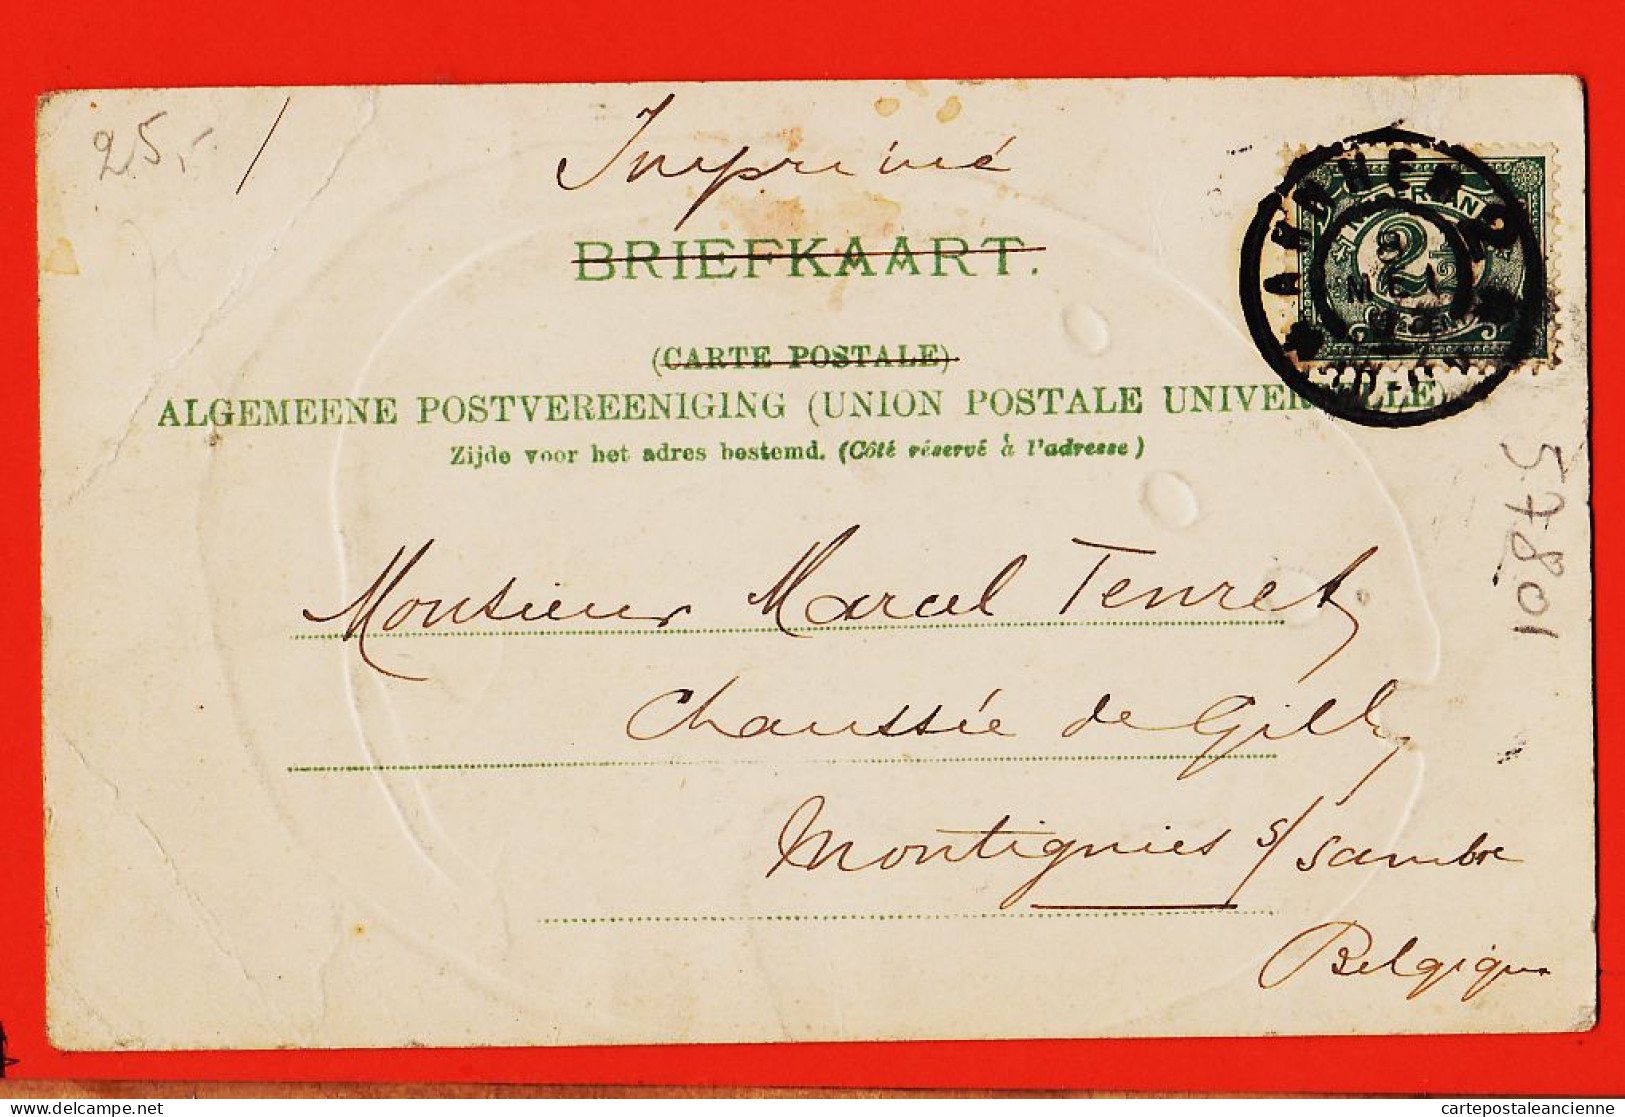 25,-
Imprimé
BRIEFKAART.
(CARTE POSTALE)
ALGEMEENE POSTVEREENIGING (UNION POSTALE UNIVERSELLE)
Zijde voor het adres bestemd. (Côté réservé à l'adresse)
ARNHEM 2
NEDERLAND
2½
Monsieur Marcel Tenret
Chaussée de Gilly
Montignies s/ Sambre
Belgique
57801
cartepostaleancienne
cartepostaleancienne.com